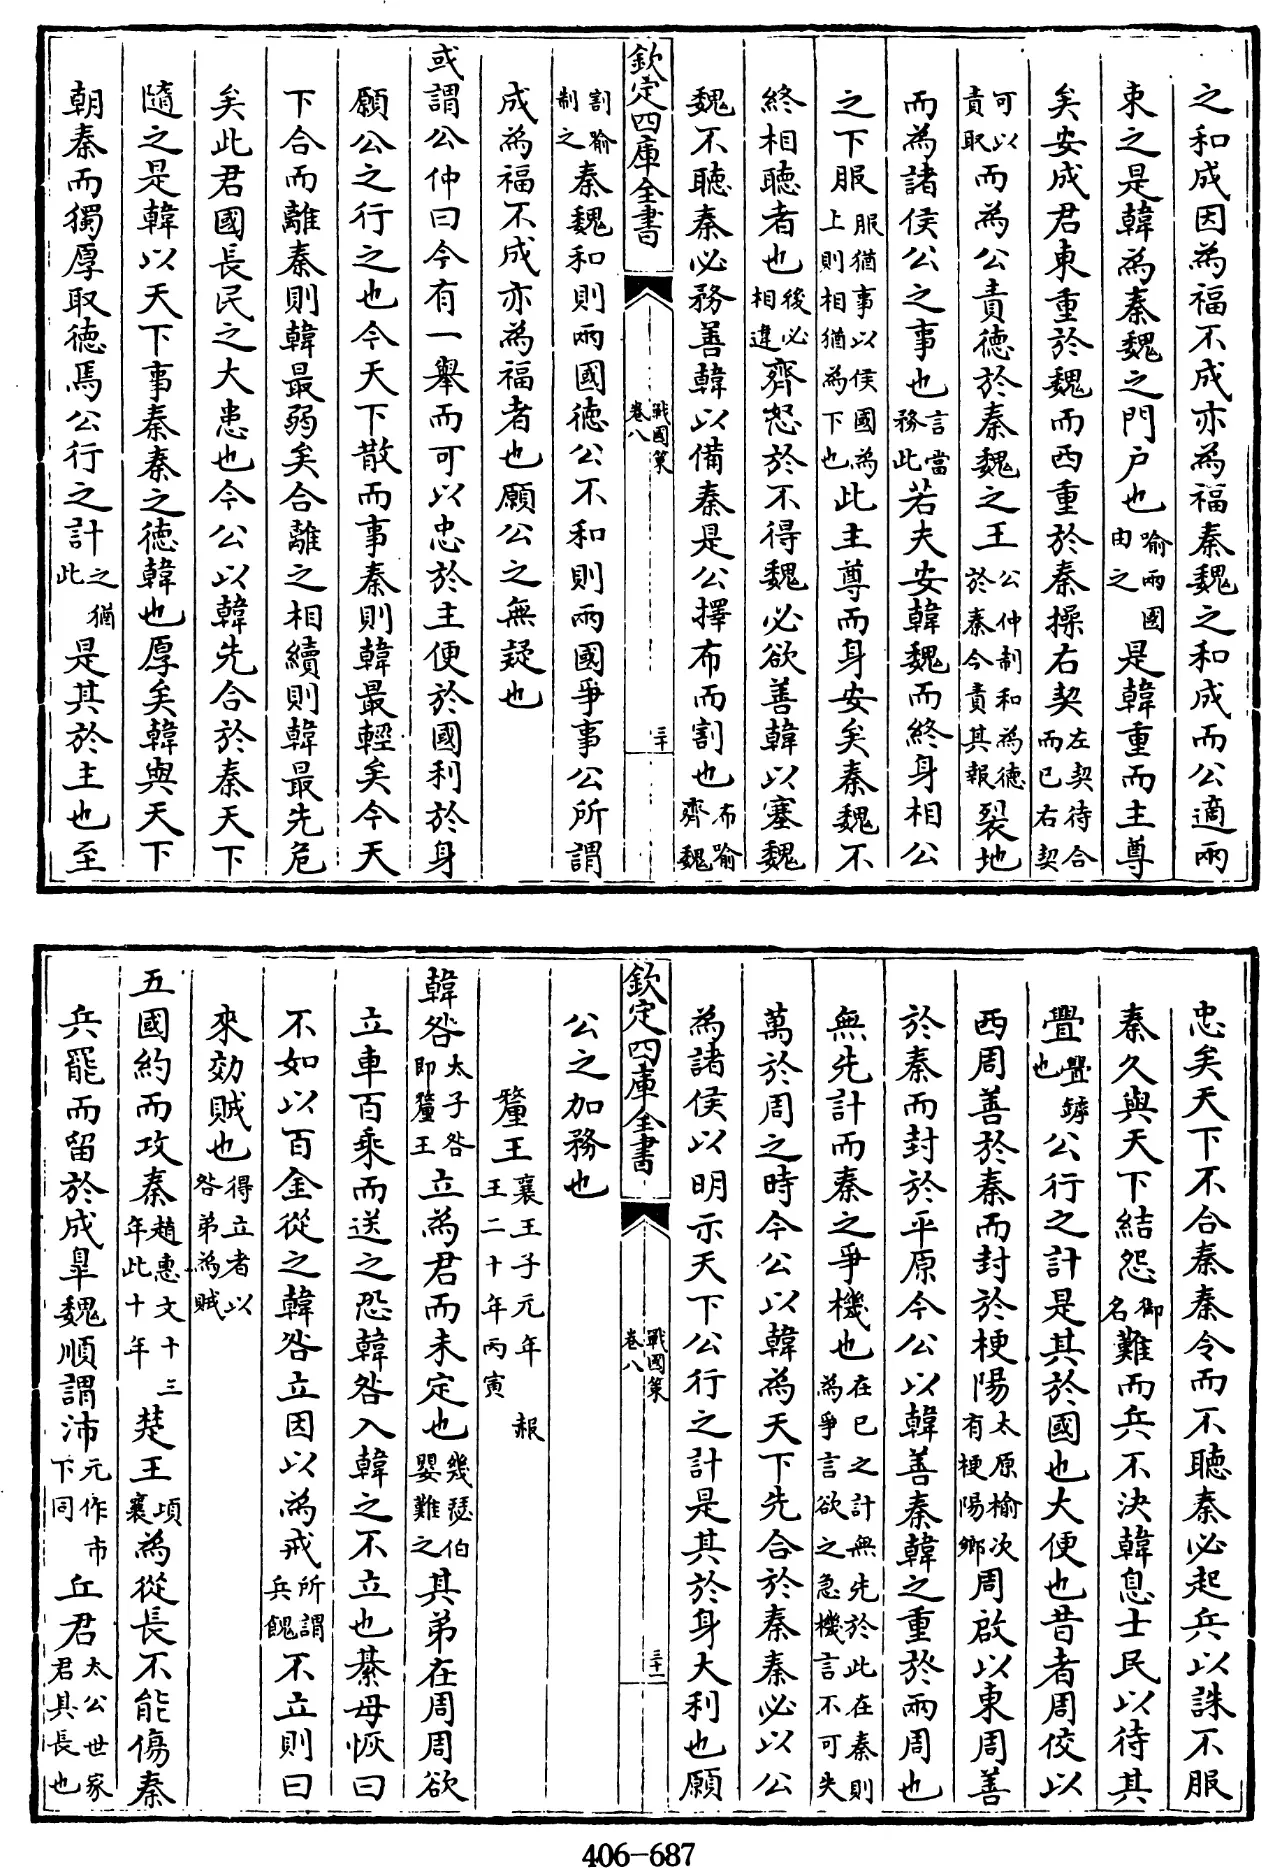 之和成因為福不成亦為福秦魏之和成而公適兩
束之是韓為秦魏之門户也喻兩國由之是韓重而主尊
矣安成君東重於魏而西重於秦操右契左契待合而已右契
可以責取而為公責徳於秦魏之王公仲制和為徳於秦今責其報裂地
而為諸侯公之事也言當務此若夫安韓魏而終身相公
之下服服猶事以侯國為上則相猶為下也此主尊而身安矣秦魏不
終相聽者也後必相違齊怒於不得魏必欲善韓以塞魏
魏不聽秦必務善韓以備秦是公擇布而割也布喻齊魏
欽定四庫全書
戰國策
卷八
三十
割喻制之秦魏和則兩國徳公不和則兩國爭事公所謂
成為福不成亦為福者也願公之無疑也
或謂公仲曰今有一舉而可以忠於主便於國利於身
願公之行之也今天下散而事秦則韓最輕矣今天
下合而離秦則韓最弱矣合離之相續則韓最先危
矣此君國長民之大患也今公以韓先合於秦天下
隨之是韓以天下事秦秦之徳韓也厚矣韓與天下
朝秦而獨厚取徳焉公行之計之猶此是其於主也至
忠矣天下不合秦秦令而不聽秦必起兵以誅不服
秦久與天下結怨御名難而兵不決韓息士民以待其
舋舋罅也公行之計是其於國也大便也昔者周佼以
西周善於秦而封於梗陽太原榆次有梗陽鄉周啟以東周善
於秦而封於平原今公以韓善秦韓之重於兩周也
無先計而秦之爭機也在已之計無先於此在秦則為爭言欲之急機言不可失
萬於周之時今公以韓為天下先合於秦秦必以公
為諸侯以明示天下公行之計是其於身大利也願
欽定四庫全書
戰國策
卷八
三十一
公之加務也
釐王襄王子元年赧王二十年丙寅
韓咎太子咎即釐王立為君而未定也幾瑟伯嬰難之其弟在周周欲
立車百乘而送之恐韓咎入韓之不立也綦母恢曰
不如以百金從之韓咎立因以為戒所謂兵餽不立則曰
來効賊也得立者以咎弟為賊
五國約而攻秦趙惠文十三年此十年楚王頃襄為從長不能傷秦
兵罷而留於成臯魏順謂沛元作市下同丘君太公世家君其長也
406-687